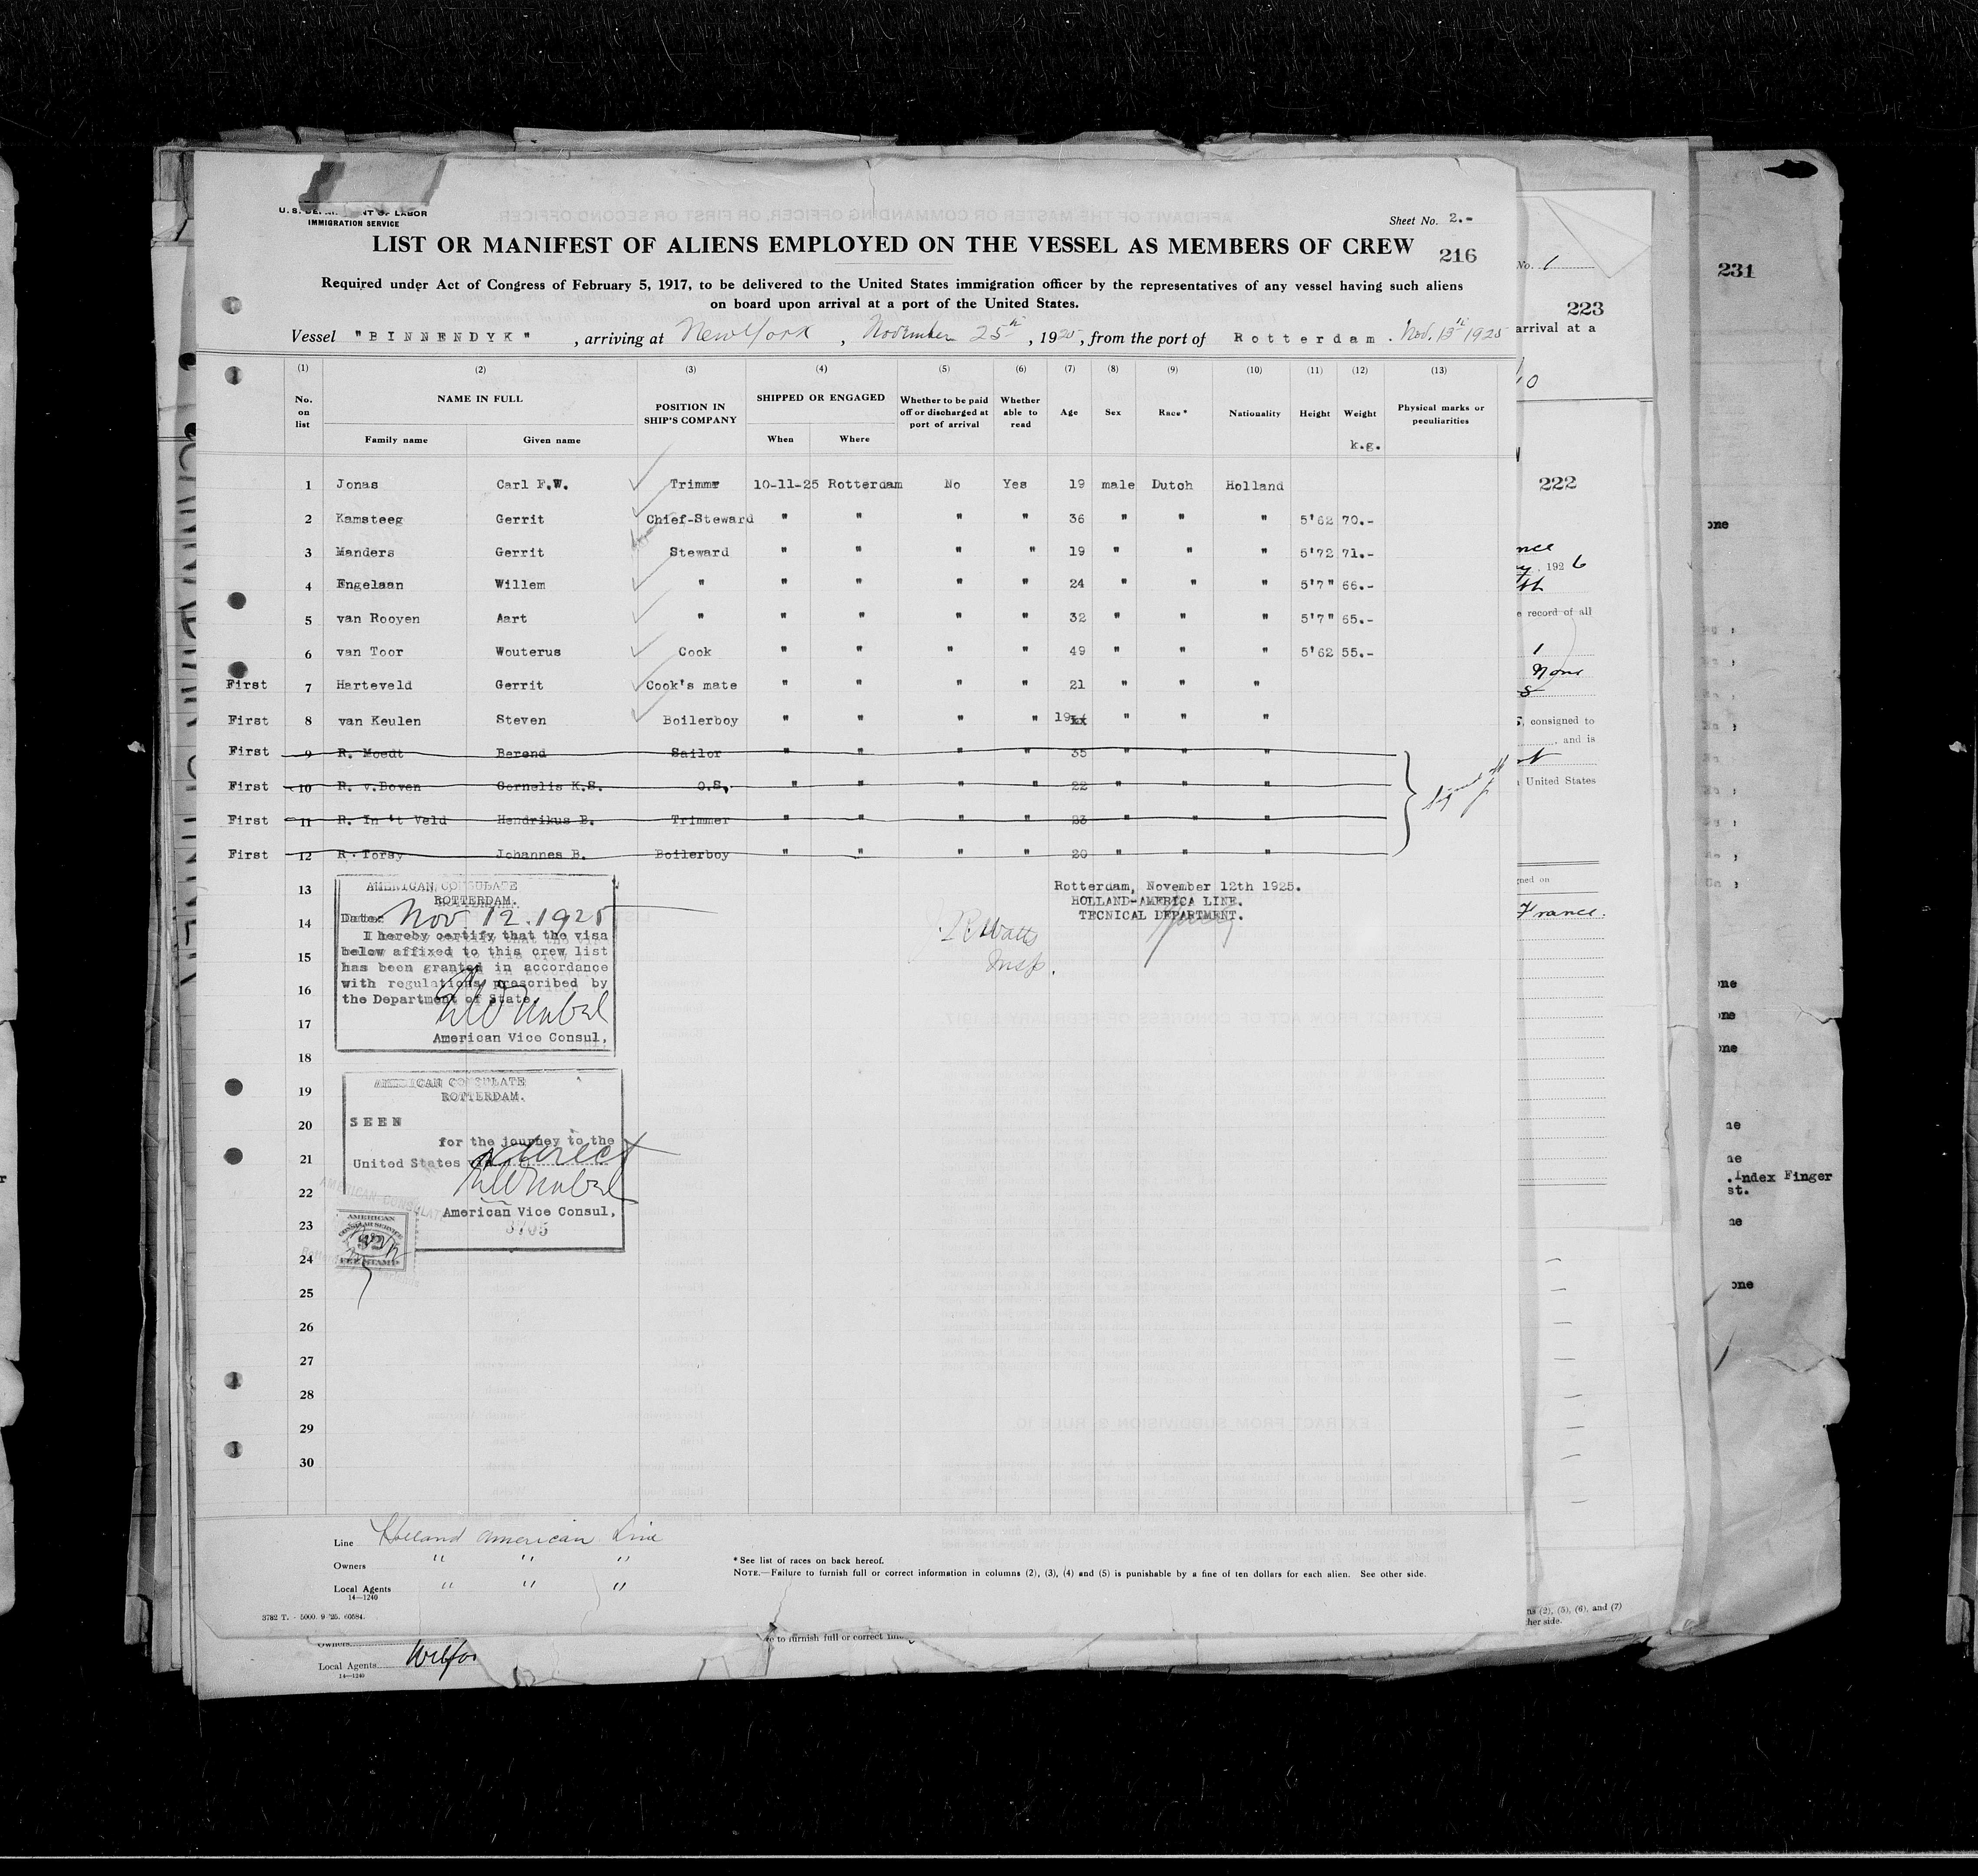 U. S. DEPARTMENT OF LABOR
IMMIGRATION SERVICE
Sheet No. 2.-
LIST OR MANIFEST OF ALIENS EMPLOYED ON THE VESSEL AS MEMBERS OF CREW
216
Required under Act of Congress of February 5, 1917, to be delivered to the United States immigration officer by the representatives of any vessel having such aliens
on board upon arrival at a port of the United States.
Vessel "BINNENDYK" , arriving at New York , November 25th , 1925, from the port of Rotterdam. Nov. 13th 1925
(1) (2) (3) (4) (5) (6) (7) (8) (9) (10) (11) (12) (13)
No. on list NAME IN FULL Family name Given name POSITION IN SHIP'S COMPANY SHIPPED OR ENGAGED When Where Whether to be paid off or discharged at port of arrival Whether able to read Age Sex Race* Nationality Height Weight k.g. Physical marks or peculiarities
1 Jonas Carl F.W. Trimmr 10-11-25 Rotterdam No Yes 19 male Dutch Holland
2 Kamsteeg Gerrit Chief-Steward " " " " 36 " " " 5'62 70.-
3 Manders Gerrit Steward " " " " 19 " " " 5'72 71.-
4 Engelaan Willem " " " " " 24 " " " 5'7" 66.-
5 van Rooyen Aart " " " " " 32 " " " 5'7" 65.-
6 van Toor Wouterus Cook " " " " 49 " " " 5'62 55.-
First 7 Harteveld Gerrit Cook's mate " " " " 21 " " "
First 8 van Keulen Steven Boilerboy " " " " 19xx " " "
First 9 R. Moedt Berend Sailor " " " " 35 " " "
First 10 R. v.Boven Cornelis K.S. O.S. " " " " 22 " " "
First 11 R. In 't Veld Hendrikus B. Trimmer " " " " 23 " " "
First 12 R. Torsy Johannes B. Boilerboy " " " " 20 " " "
Signed off
13
14
15
16
17
18
19
20
21
22
23
24
25
26
27
28
29
30
AMERICAN CONSULATE
ROTTERDAM.
Date: Nov 12. 1925
I hereby certify that the visa
below affixed to this crew list
has been granted in accordance
with regulations prescribed by
the Department of State.
American Vice Consul,
Rotterdam, November 12th 1925.
HOLLAND-AMERICA LINE.
TECNICAL DEPARTMENT.
Watts
Insp.
AMERICAN CONSULATE
ROTTERDAM.
SEEN
for the journey to the
United States via direct
American Vice Consul,
3705
AMERICAN
CONSULAR SERVICE
$2
FEE STAMP
Line Holland American Line
Owners " " "
Local Agents " " "
14—1240
* See list of races on back hereof.
NOTE.—Failure to furnish full or correct information in columns (2), (3), (4) and (5) is punishable by a fine of ten dollars for each alien. See other side.
3782 T. - 5000. 9 '25. 60584.
Owners
Local Agents
14—1240
to furnish full or correct
No. 1
223
arrival at a
222
1926
e record of all
1
None
, consigned to
, and is
United States
France.
(2), (5), (6), and (7)
her side.
231
one
Index Finger
st.
one